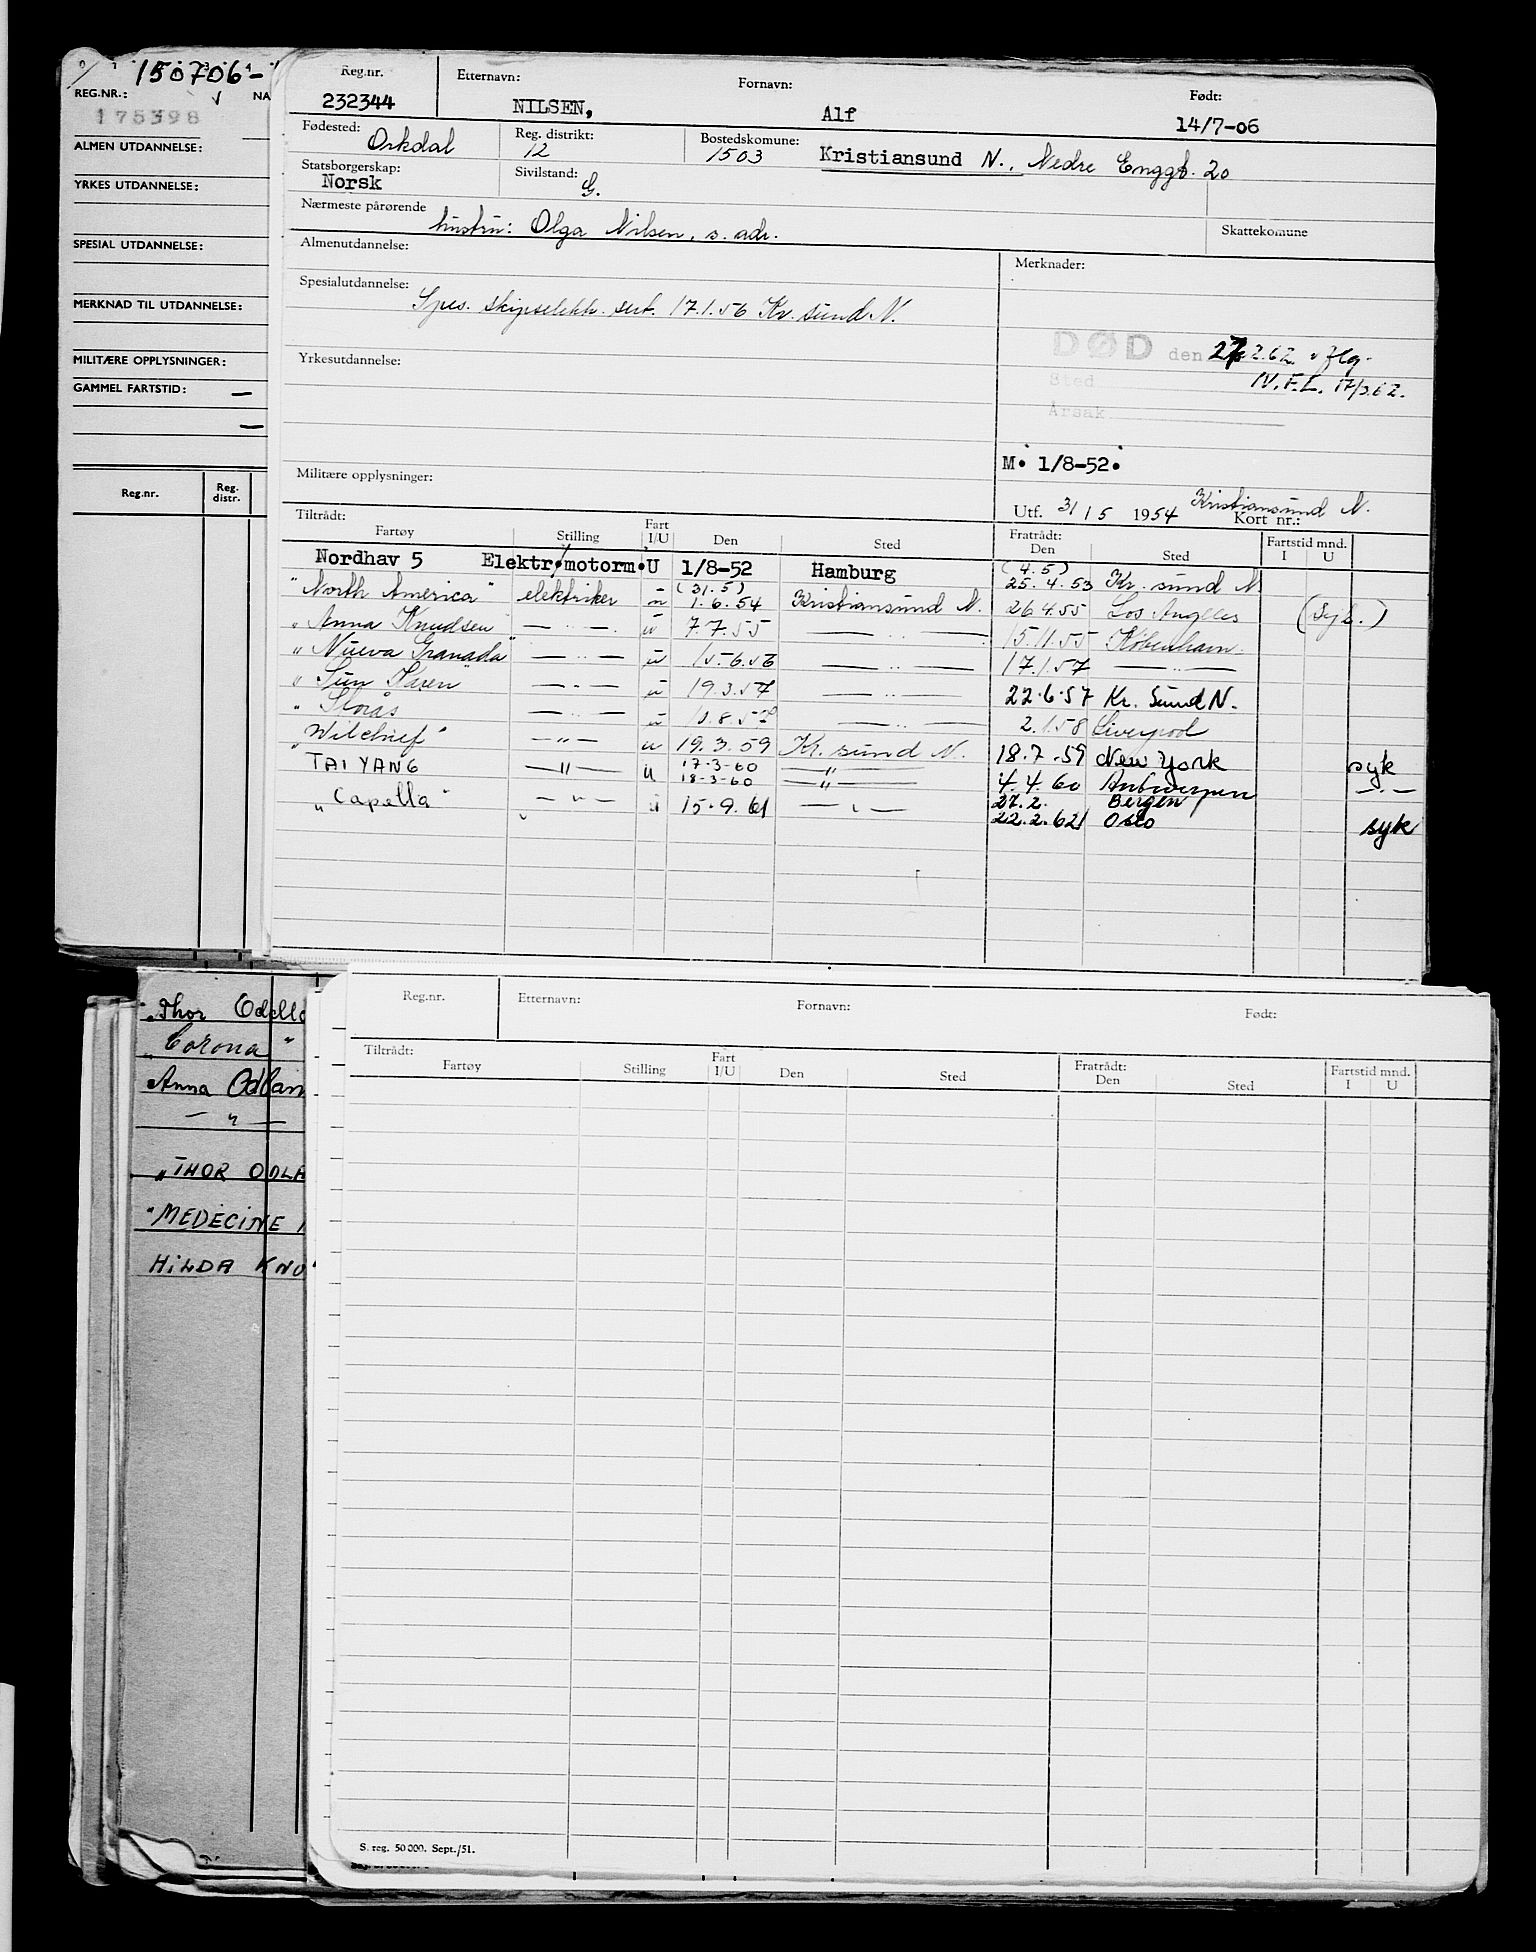 150706-
REG.NR.:
NA
175398
ALMEN UTDANNELSE:
YRKES UTDANNELSE:
SPESIAL UTDANNELSE:
MERKNAD TIL UTDANNELSE:
MILITÆRE OPPLYSNINGER:
GAMMEL FARTSTID: —
—
Reg.nr. Reg. distr.
Reg.nr. Etternavn: Fornavn: Født:
232344 NILSEN, Alf 14/7-06
Fødested: Orkdal Reg. distrikt: 12 Bostedskomune: 1503 Kristiansund N., Nedre Enggt. 20
Statsborgerskap: Norsk Sivilstand: G.
Nærmeste pårørende hustru: Olga Nilsen, s. adr.
Skattekomune
Almenutdannelse:
Merknader:
Spesialutdannelse: Spes. skipselektr. sert. 17.1.56 Kr. sund N.
DØD den 27.2.62 iflg.
Sted N.F.L. 17/3.62.
Årsak
Yrkesutdannelse:
M. 1/8-52.
Militære opplysninger:
Utf. 31/5 1954 Kristiansund N.
Kort nr.:
Tiltrådt: Fartøy Stilling Fart I/U Den Sted Fratrådt: Den Sted Fartstid mnd. I U
Nordhav 5 Elektr./motorm. U 1/8-52 Hamburg (4.5) 25.4.53 Kr. sund N.
"North America" elektriker u (31.5) 1.6.54 Kristiansund N. 26.4.55 Los Angeles (syk.)
"Anna Knudsen" — " — u 7.7.55 — " — 15.11.55 København.
"Nueva Granada" — " — u 15.6.56 — " — 17.1.57 — " —
"Sun Karen" — " — u 19.3.57 — " — 22.6.57 Kr. Sund N.
"Storås — " — u — " — 2.1.58 Liverpool
"Wilchief" — " — u 19.3.59 Kr. sund N. 18.7.59 New York syk
TAI YANG — " — u 17-3-60 18-3-60 — " — 4.4.60 Antwerpen — " —
"Capella" — " — u 15.9.61 — " — 27.2. Bergen
22.2.62 Oslo syk
"Thor Odella
"Corona"
Anna Odlan
— " —
"THOR ODLA
"MEDECINE
HILDA KNU
Reg.nr. Etternavn: Fornavn: Født:
Tiltrådt: Fartøy Stilling Fart I/U Den Sted Fratrådt: Den Sted Fartstid mnd. I U
S. reg. 50 000. Sept./51.